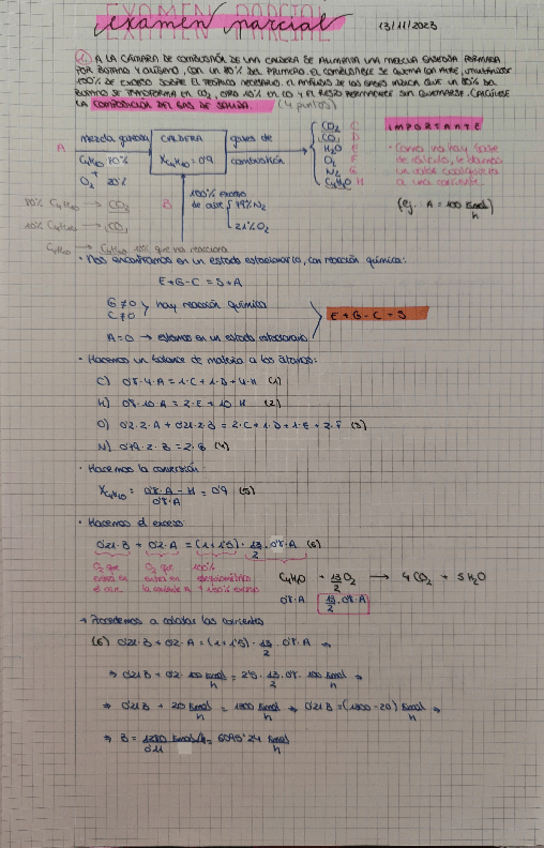 EXAMEN PARCIAL
examen parcial
13/11/2023
1. A LA CÁMARA DE COMBUSTIÓN DE UNA CALDERA SE ALIMENTA UNA MEZCLA GASEOSA FORMADA
POR BUTANO Y OXÍGENO, CON UN 80% DEL PRIMERO. EL COMBUSTIBLE SE QUEMA CON AIRE, UTILIZÁNDOSE
DE EXCESO SOBRE EL TEÓRICO NECESARIO. EL ANÁLISIS DE LOS GASES INDICA QUE UN 80% DEL
BUTANO SE TRANSFORMA EN CO2, OTRO 10% EN CO Y EL RESTO PERMANECE SIN QUEMARSE. CALCÚLESE
LA COMPOSICIÓN DEL GAS DE SALIDA. (4 puntos)
A mezcla gaseosa
C4H10 80%
+
O2 20%
CALDERA
XC4H10 = 0'9
gases de
combustión
CO2 C
CO D
H2O E
O2 F
N2 G
C4H10 H
IMPORTANTE
• Como no hay base
de cálculo, le damos
un valor cualquiera
a una corriente.
(ej. A = 100 Kmol/h)
B
de aire
79% N2
21% O2
80% C4H10 → CO2
10% C4H10 → CO
C4H10 → C4H10 10% que no reacciona
• Nos encontramos en un estado estacionario, con reacción química:
E + G - C = S + A
G ≠ 0
C ≠ 0
hay reacción química
A = 0 → estamos en un estado estacionario
E + G - C = S
• Hacemos un balance de materia a los átomos:
C) 0'8·4·A = 1·C + 1·D + 4·H (1)
H) 0'8·10·A = 2·E + 10·H (2)
O) 0'2·2·A + 0'21·2·B = 2·C + 1·D + 1·E + 2·F (3)
N) 0'79·2·B = 2·G (4)
• Hacemos la conversión:
XC4H10 = (0'8·A - H)/(0'8·A) = 0'9 (5)
• Hacemos el exceso:
0'21·B + 0'2·A = (1 + 1'5)·13/2·0'8·A (6)
O2 que
entra en
el aire
O2 que
entra en
la corriente A
100%
estequiométrico
+ 150% exceso
+ 13/2 O2 → 4CO2 + 5H2O
0'8·A
13/2·0'8·A
→ Procedemos a calcular las corrientes
(6) 0'21·B + 0'2·A = (1 + 1'5)·13/2·0'8·A ⇒
⇒ 0'21B + 0'2·100 Kmol/h = 2'5·13/2·0'8·100 Kmol/h ⇒
⇒ 0'21B + 20 Kmol/h = 1300 Kmol/h ⇒ 0'21B = (1300 - 20) Kmol/h ⇒
⇒ B = 1280 Kmol/h / 0'21 = 6095'24 Kmol/h